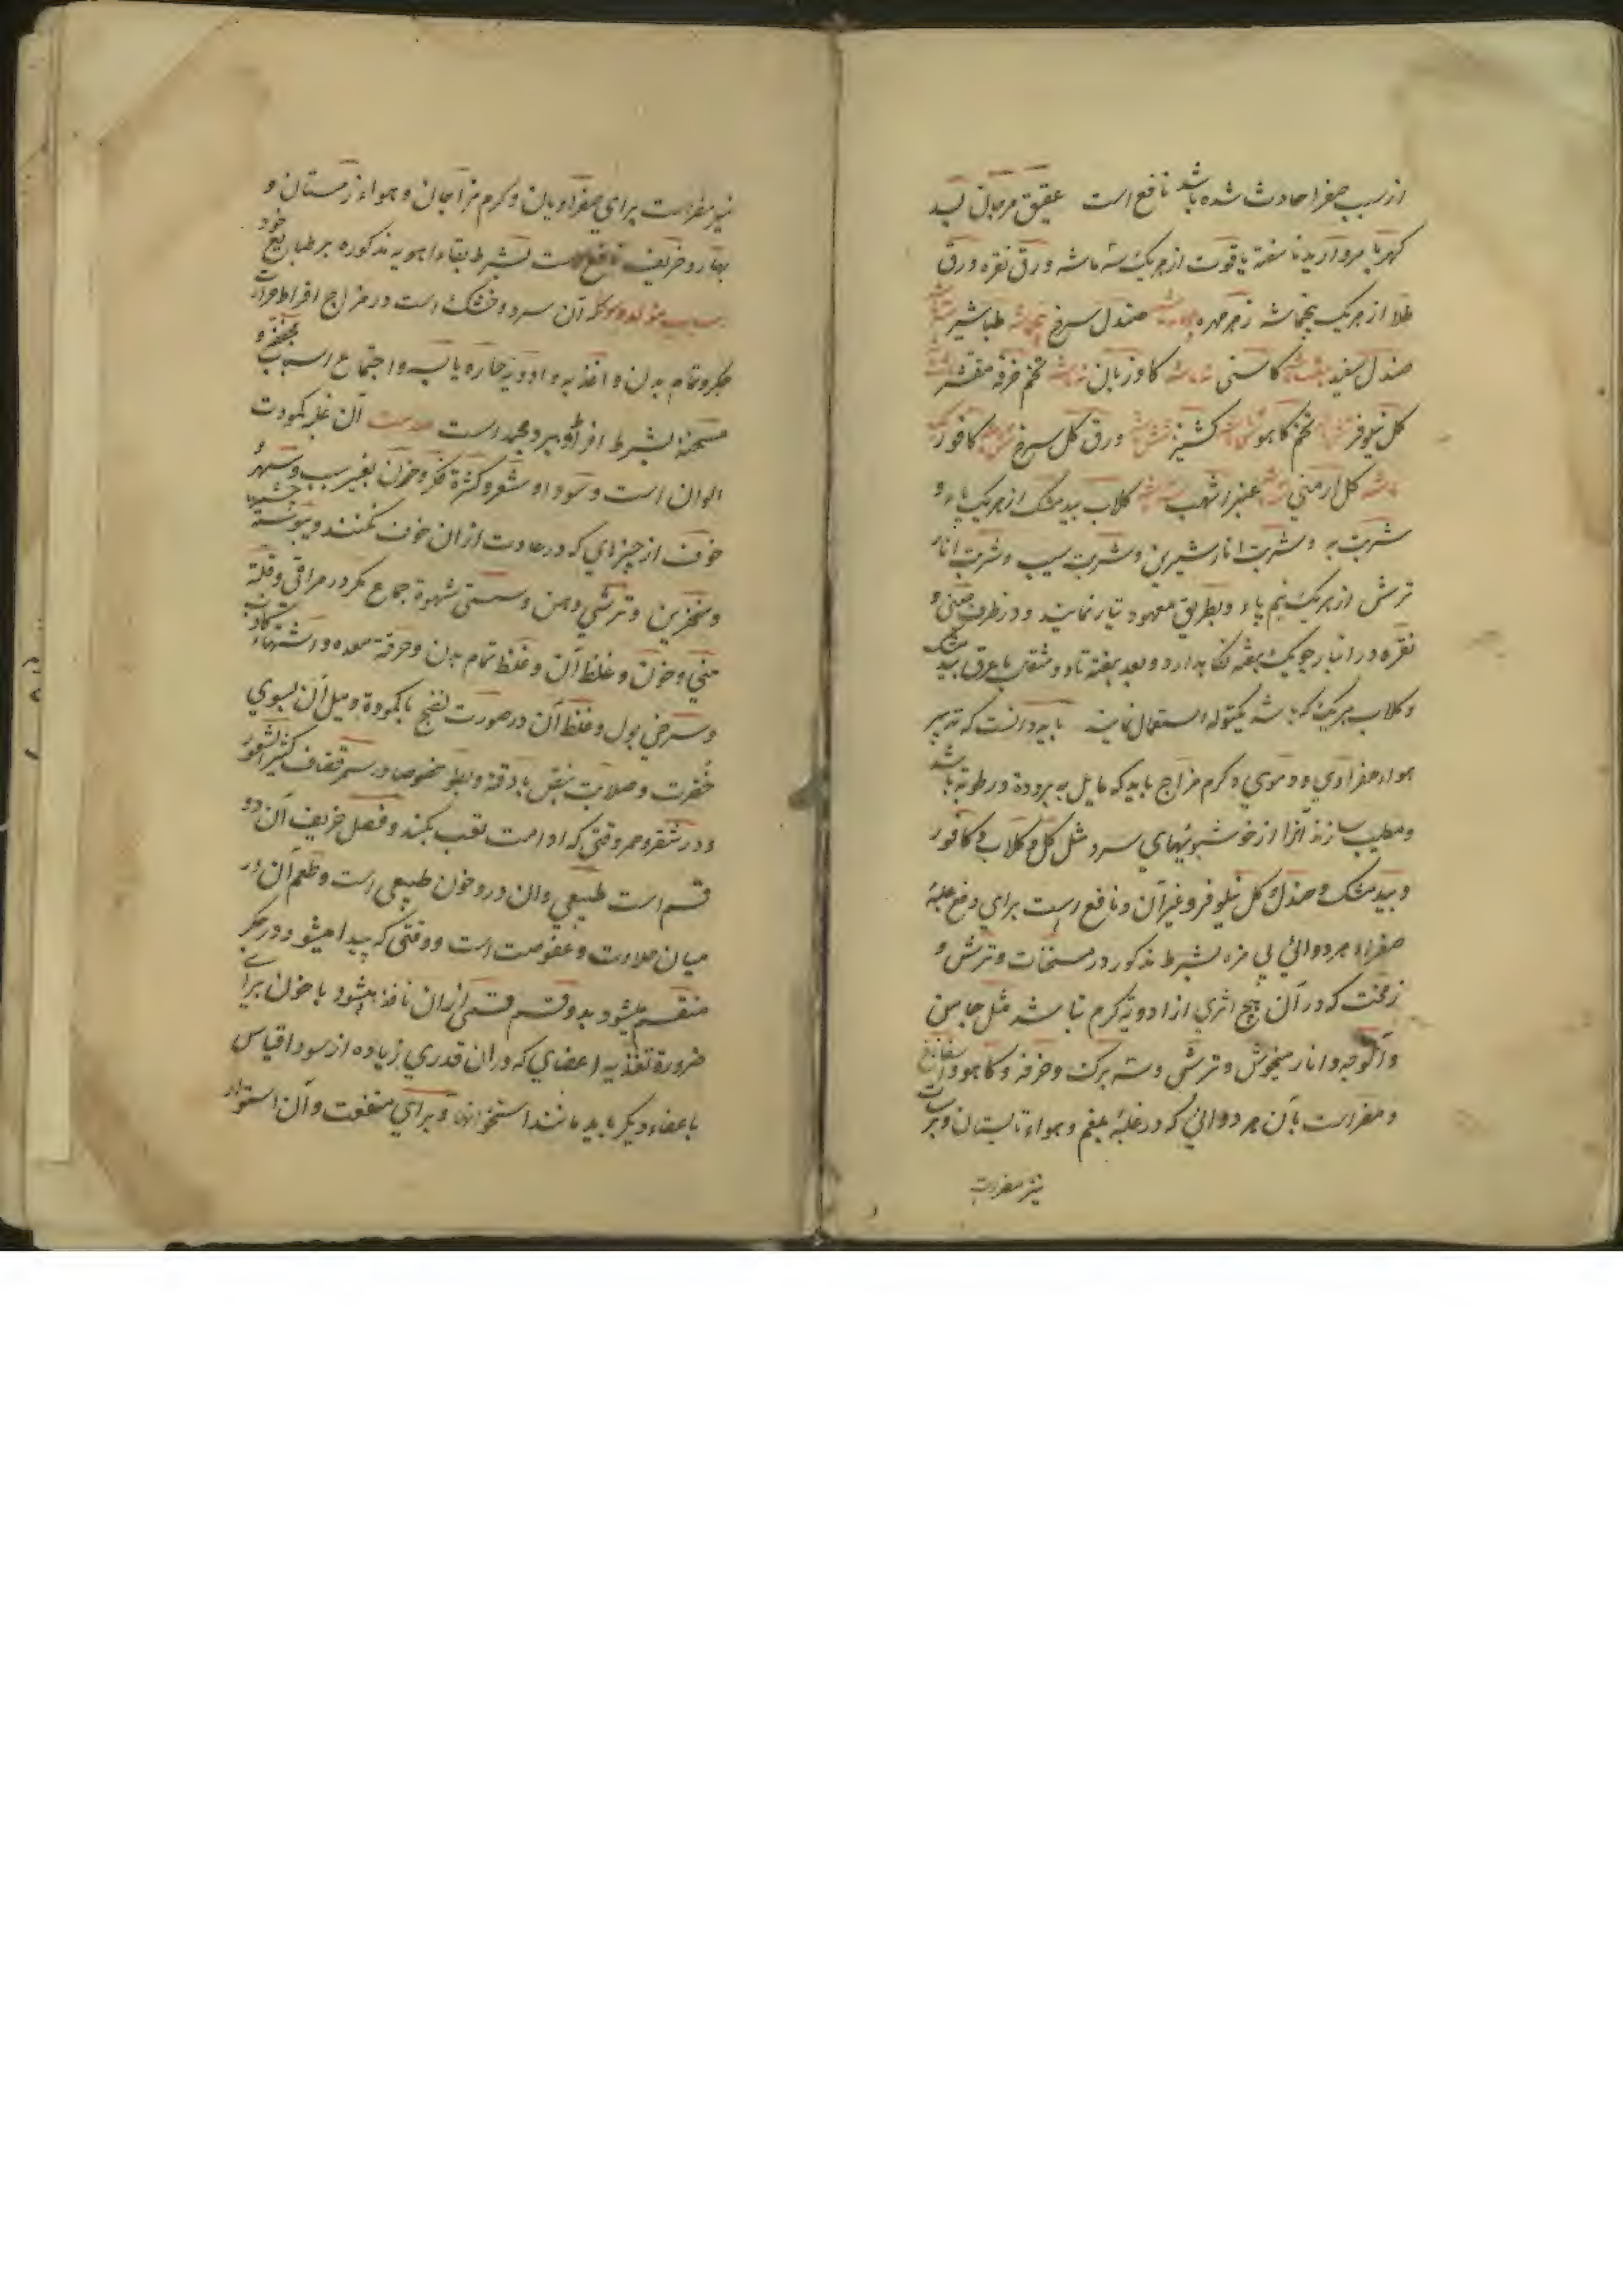 از سبب صفرا حادث شده باشد نافع است عقیق مرجان
کهربا مروارید ناسفته یاقوت از هریک سه ماشه ورق نقره ورق
طلا از هریک پنجماشه زهرمهره صندل سرخ طباشیر
صندل سفید کاسنی کاوزبان تخم خرفه مقشر
کل نیلوفر تخم کاهو کشنیز ورق کل سرخ کافور
ماشه کل ارمنی عنبر اشهب کلاب بیدمشک از هریک پاء و
شربت به و شربت انار شیرین و شربت سیب و شربت انار
ترش از هریک نیم پاء و بطریق معهود تیار نمایند و در ظرف چینی و
نقره در انبار جو یک هفته نکاه دارد و بعد هفته تا دو مثقال با عرق بیدمشک
و کلاب هریک که باشد یکتوله استعمال نمایند باید دانست که تدبیر
هواء صفراوی و دموی و کرم مزاج باید که مایل به برودة و رطوبة باشد
و مطیب سازند آنرا از خوشبوئیهای سرد مثل کل و کلاب و کافور
و بیدمشک و صندل و کل نیلوفر و غیر آن و نافع است برای دفع غلبهٔ
صفراء هر دوائی بی مزه بشرط مذکور در مسخنات و ترش و
زمخت که در آن هیچ اثری از ادویهٔ کرم نباشد مثل جامن
و آلوچه و انار میخوش و ترشی و خرفه و کاهو و اسفاناخ
و مضر است بآن هر دوائی که در غلبهٔ بلغم و هواء تابستان و
نیز مضر است
نیز مضر است برای صفراویان و کرم مزاجان و هواء زمستان و
بهار و خریف نافع است بشرط بقاء اهویه مذکوره بر طبایع خود
آن سرد و خشک است در مزاج افراط حرارت
جکر و تمام بدن و اغذیه و ادویهٔ حاره یابسه و اجتماع اسباب مجففه و
مسخنه بشرط افراط و بیرد مجمد است علامت آن غلبه کمودت
الوان است و سواد شعر و کثرة فکر و حزن بغیر سبب و سهر و
خوف از چیزهای که در عادت از ان خوف نکنند و یبوسة
و منخرین و ترشی دهن و سستی شهوة جماع مکر در مراقی و قلة
منی و خون و غلظ آن و غلظ تمام بدن و حرقة معده و اشتهاء
و سرخی بول و غلظ آن در صورت نضج با کمودة و میل آن بسوی
خضرت و صلابت نبض با دقة و بطو خصوصا در سمر قضاف کثیر الشعور
و در شقر و حمر وقتی که ادامت تعب بکند و فصل خریف آن دو
قسم است طبیعی و ان درد خون طبیعی است و طعم آن در
میان حلاوت و عفوصت است و وقتی که پیدا میشود در جکر
منقسم میشود بدو قسم قسمی از ان نافذ میشود با خون برای
ضرورة تغذیه اعضای که در ان قدری زیاده از سودا قیاس
باعضاء دیکر باید مانند استخوانها و برای منفعت و آن استوار